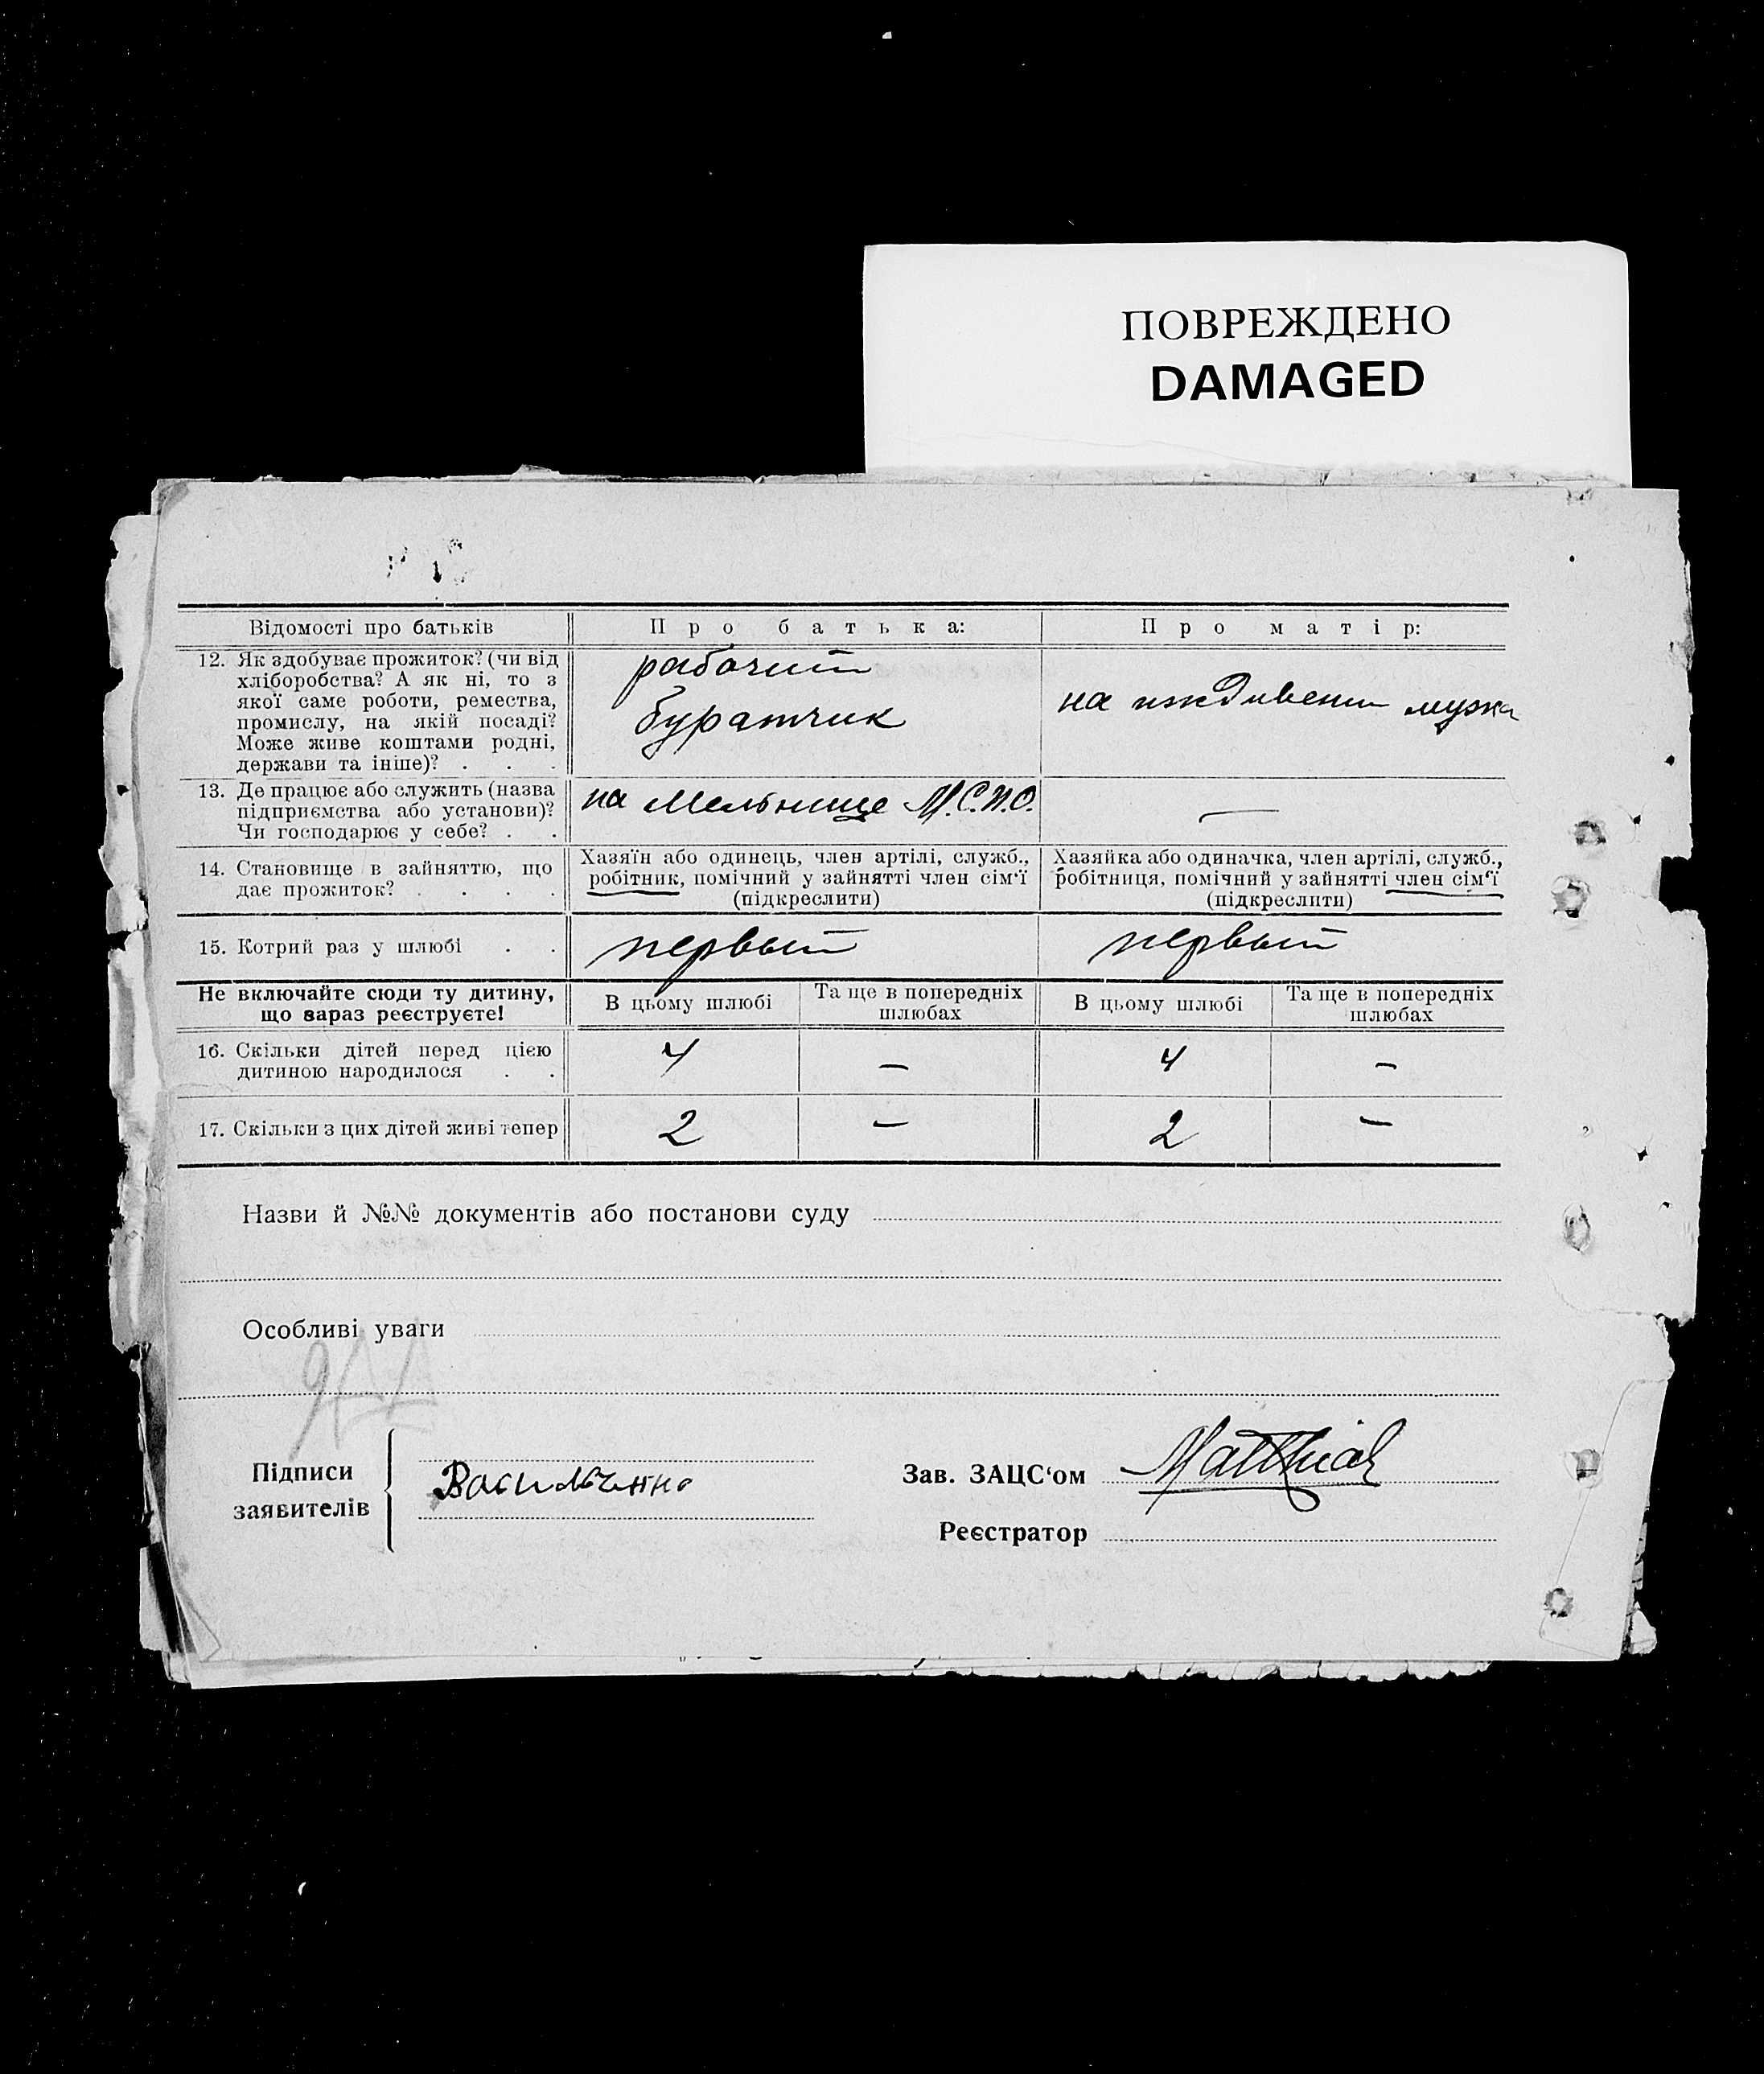 ПОВРЕЖДЕНО
DAMAGED
Відомості про батьків
Про батька:
Про матір:
12. Як здобуває прожиток? (чи від
хліборобства? А як ні, то з
якої саме роботи, ремества,
промислу, на якій посаді?
Може живе коштами родні,
держави та інше)? . . .
рабочий
буратчик
на иждивении мужа
13. Де працює або служить (назва
підприємства або установи)?
Чи господарює у себе? . .
на Мельнице М.С.П.О.
—
14. Становище в зайняттю, що
дає прожиток? . . . .
Хазяїн або одинець, член артілі, служб.,
робітник, помічний у зайнятті член сім'ї
(підкреслити)
Хазяйка або одиначка, член артілі, служб.,
робітниця, помічний у зайнятті член сім'ї
(підкреслити)
15. Котрий раз у шлюбі . .
первый
первый
Не включайте сюди ту дитину,
що зараз реєструєте!
В цьому шлюбі
Та ще в попередніх
шлюбах
В цьому шлюбі
Та ще в попередніх
шлюбах
16. Скільки дітей перед цією
дитиною народилося . .
4
—
4
—
17. Скільки з цих дітей живі тепер
2
—
2
—
Назви й №№ документів або постанови суду
Особливі уваги
Підписи
заявителів
Зав. ЗАЦС'ом
Реєстратор